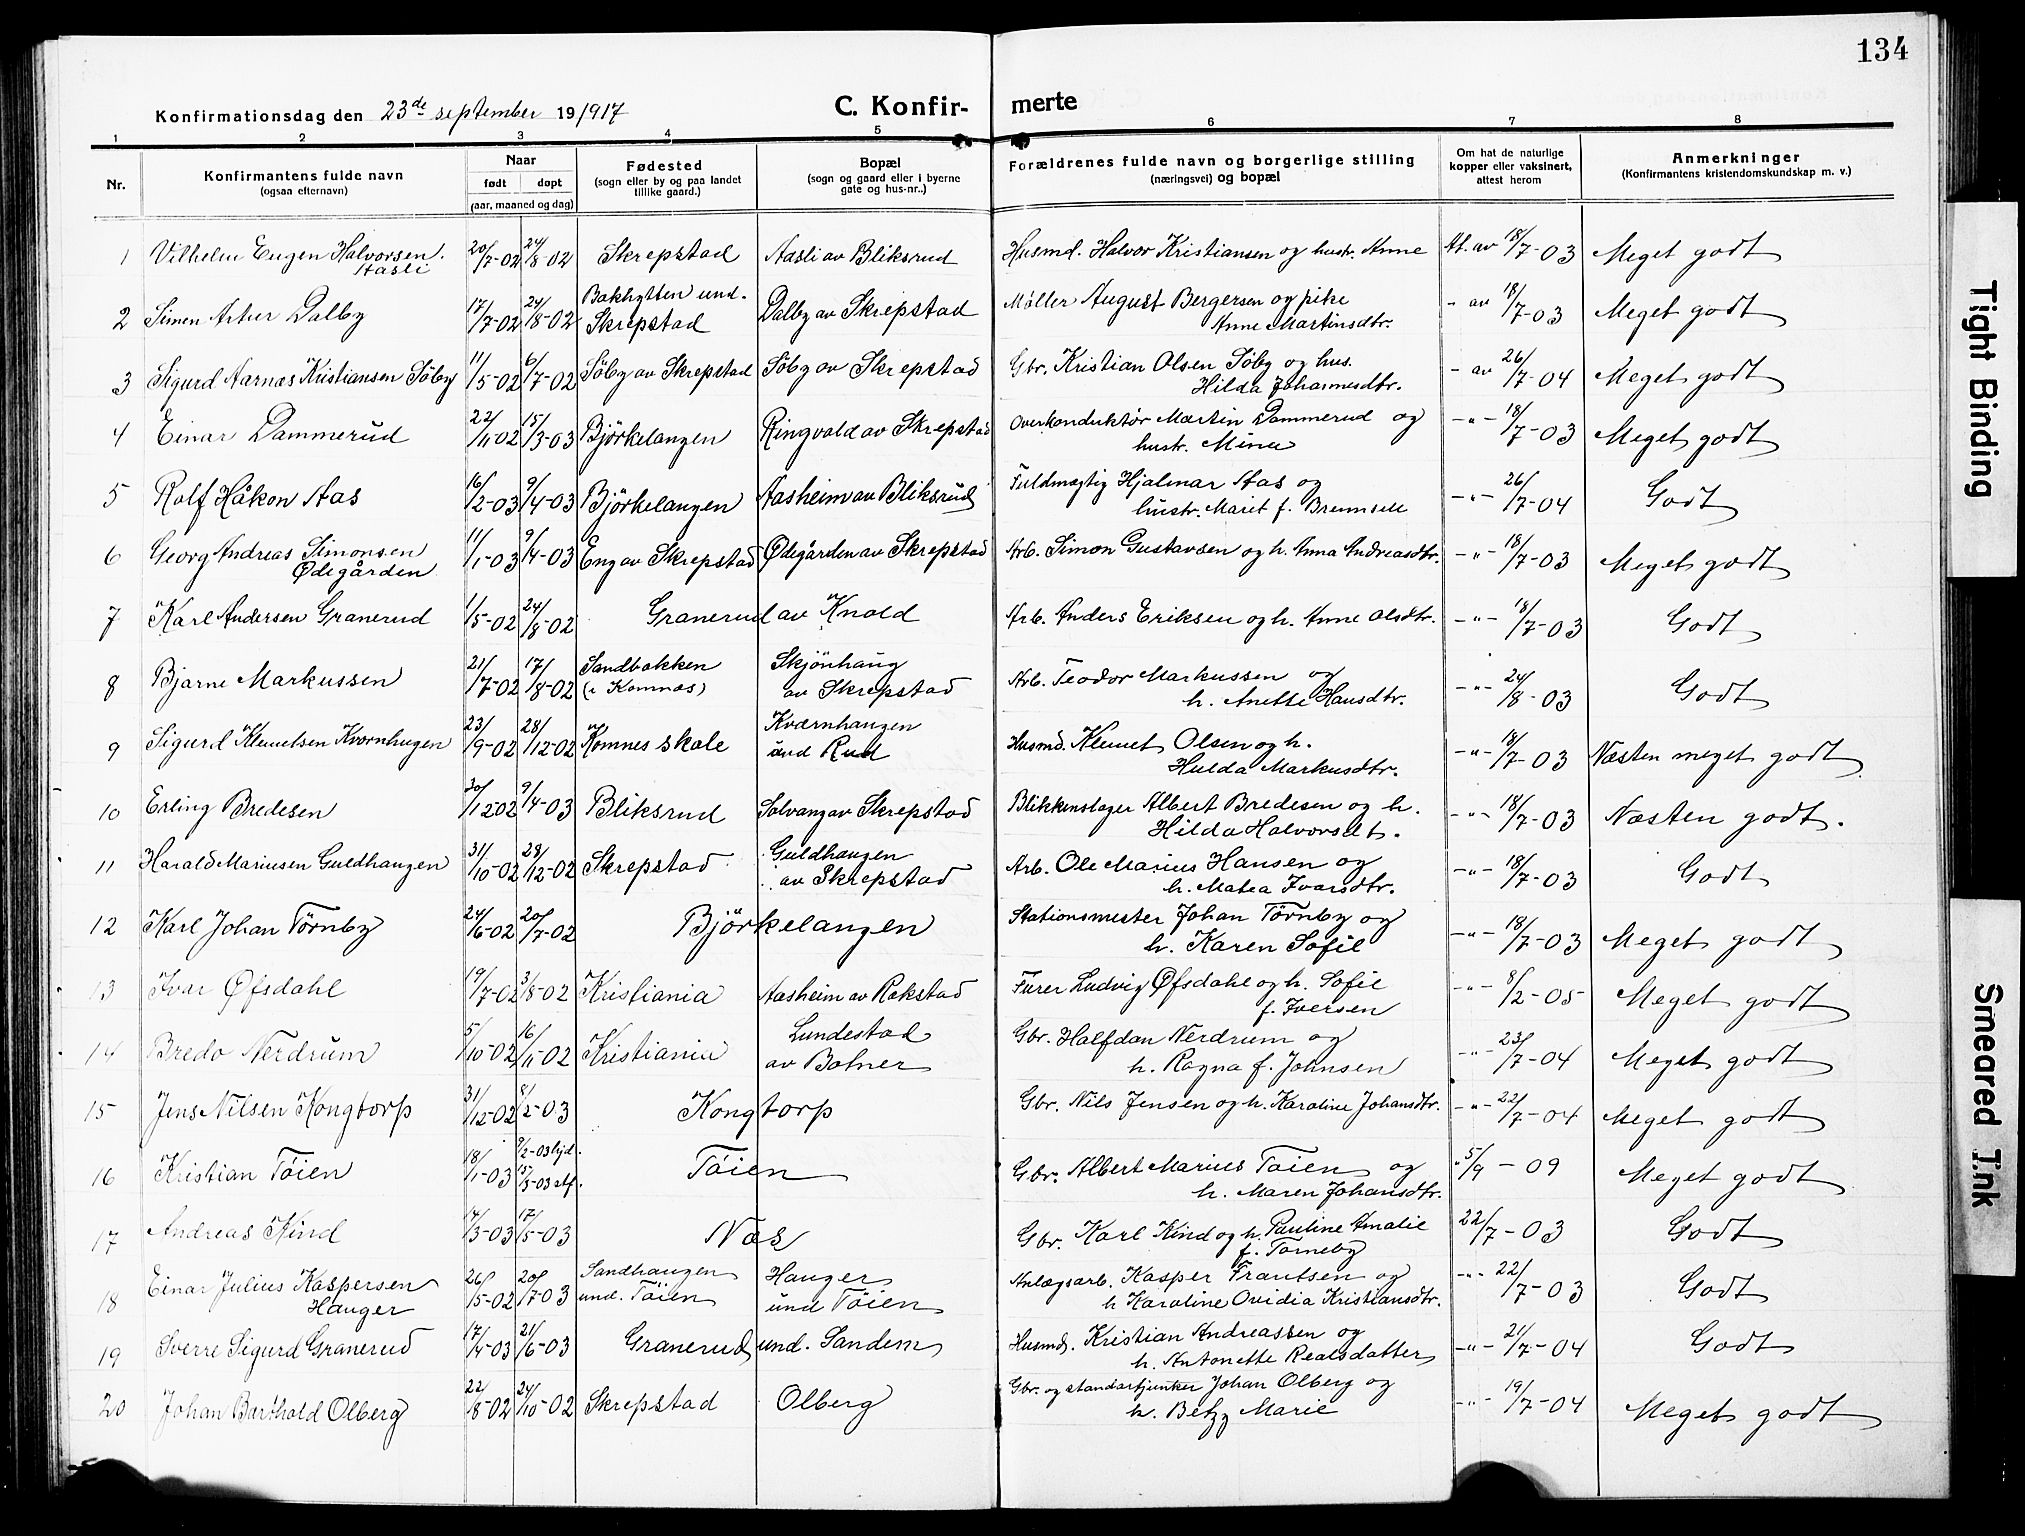 134
Konfirmationsdag den 23de september 19/917 C. Konfir- merte
1 2 3 4 5 6 7 8
Nr. Konfirmantens fulde navn (ogsaa efternavn) Naar født døpt (aar, maaned og dag) Fødested (sogn eller by og paa landet tillike gaard.) Bopæl (sogn og gaard eller i byerne gate og hus-nr..) Forældrenes fulde navn og borgerlige stilling (næringsvei) og bopæl Om hat de naturlige kopper eller vaksinert, attest herom Anmerkninger (Konfirmantens kristendomskundskap m. v.)
1 Vilhelm Eugen Halvorsen Aasli 20/7-02 24/8-02 Skrepstad Aasli av Bliksrud Husmd. Halvor Kristiansen og hustr. Anne At. av 18/7-03 Meget godt
2 Simen Artur Dalby 17/7-02 24/8-02 Bakhytten und. Skrepstad Dalby av Skrepstad Møller August Bergersen og pike Anne Martinsdtr. - av 18/7-03 Meget godt
3 Sigurd Aarnæs Kristiansen Söby 11/5-02 6/7-02 Söby av Skrepstad Söby av Skrepstad Gbr. Kristian Olsen Söby og hus. Hilda Johannesdtr. - av 26/7-04 Meget godt
4 Einar Dammerud 22/11-02 15/3-03 Björkelangen Ringvold av Skrepstad Overkonduktør Martin Dammerud og hustr. Mina -"- 18/7-03 Meget godt
5 Rolf Håkon Aas 16/2-03 9/4-03 Björkelangen Aasheim av Bliksrud Fuldmægtig Hjalmar Aas og hustr. Marit f. -"- 26/7-04 Godt
6 Georg Andreas Simonsen Ødegården 11/1-03 9/4-03 Eng av Skrepstad Ødegården av Skrepstad Arb. Simon Gustavsen og h. Anna Andreasdtr. -"- 18/7-03 Meget godt
7 Karl Andersen Granerud 1/5-02 24/8-02 Granerud av Knold Arb. Anders Eriksen og h. Anne Olsdtr. -"- 18/7-03 Godt
8 Bjarne Markussen 21/7-02 17/8-02 Sandbakken (i Komnæs) Skjönhaug av Skrepstad Arb. Teodor Markussen og h. Anette Hansdtr. -"- 24/8-03 Godt
9 Sigurd Klemetsen Kvornhugen 23/9-02 28/12-02 Komnes skole Kværnhaugen und Rud Husmd. Klemet Olsen og h. Hulda Markusdtr. -"- 18/7-03 Næsten meget godt
10 Erling Bredesen 30/12-02 9/4-03 Bliksrud Solvang av Skrepstad Blikkenslager Albert Bredesen og h. Hilda Halvorsdt. -"- 18/7-03 Næsten godt.
11 Harald Mariusen Guldhaugen 31/10-02 28/12-02 Skrepstad Guldhaugen av Skrepstad Arb. Ole Marius Hansen og h. Matea Ivarsdtr. -"- 18/7-03 Godt
12 Karl Johan Törnby 24/6-02 20/7-02 Björkelangen Stationsmester Johan Törnby og h. Karen Sofie -"- 18/7-03 Meget godt
13 Ivar Øfsdahl 19/7-02 3/8-02 Kristiania Aasheim av Rakstad Furer Ludvig Øfsdahl og h. Sofie f. Iversen -"- 8/2-05 Meget godt
14 Bredo Nerdrum 5/10-02 16/11-02 Kristiania Lundestad av Botner Gbr. Halfdan Nerdrum og h. Ragna f. Johnsen -"- 23/7-04 Meget godt
15 Jens Nilsen Kongtorp 31/12-02 8/2-03 Kongtorp Gbr. Nils Jensen og h. Karoline Johansdtr. -"- 22/7-04 Meget godt
16 Kristian Töien 18/1-03 8/2-03 hjd. 15/3-03 stf. Töien Gbr. Albert Marius Töien og h. Maren Johansdtr. 5/9-09 Meget godt
17 Andreas Kind 14/3-03 17/5-03 Næs Gbr. Karl Kind og h. Pauline Amalie f. Törneby 22/7-03 Godt
18 Einar Julius Kaspersen Hauger 26/5-02 20/7-03 Sandhaugen und. Töien Hauger und Töien Anlægsarb. Kasper Frantsen og h Karoline Ovidia Kristiansdtr. -"- 22/7-03 Godt
19 Sverre Sigurd Granerud 17/4-03 21/6-03 Granerud und. Sandem Husmd. Kristian Andreassen og h. Antonette Realsdatter -"- 21/7-04 Godt
20 Johan Barthold Olberg 22/8-02 24/10-02 Skrepstad Olberg Gbr. og standartjunker Johan Olberg og h. Betzy Marie -"- 19/7-04 Meget godt
Tight Binding
Smeared Ink